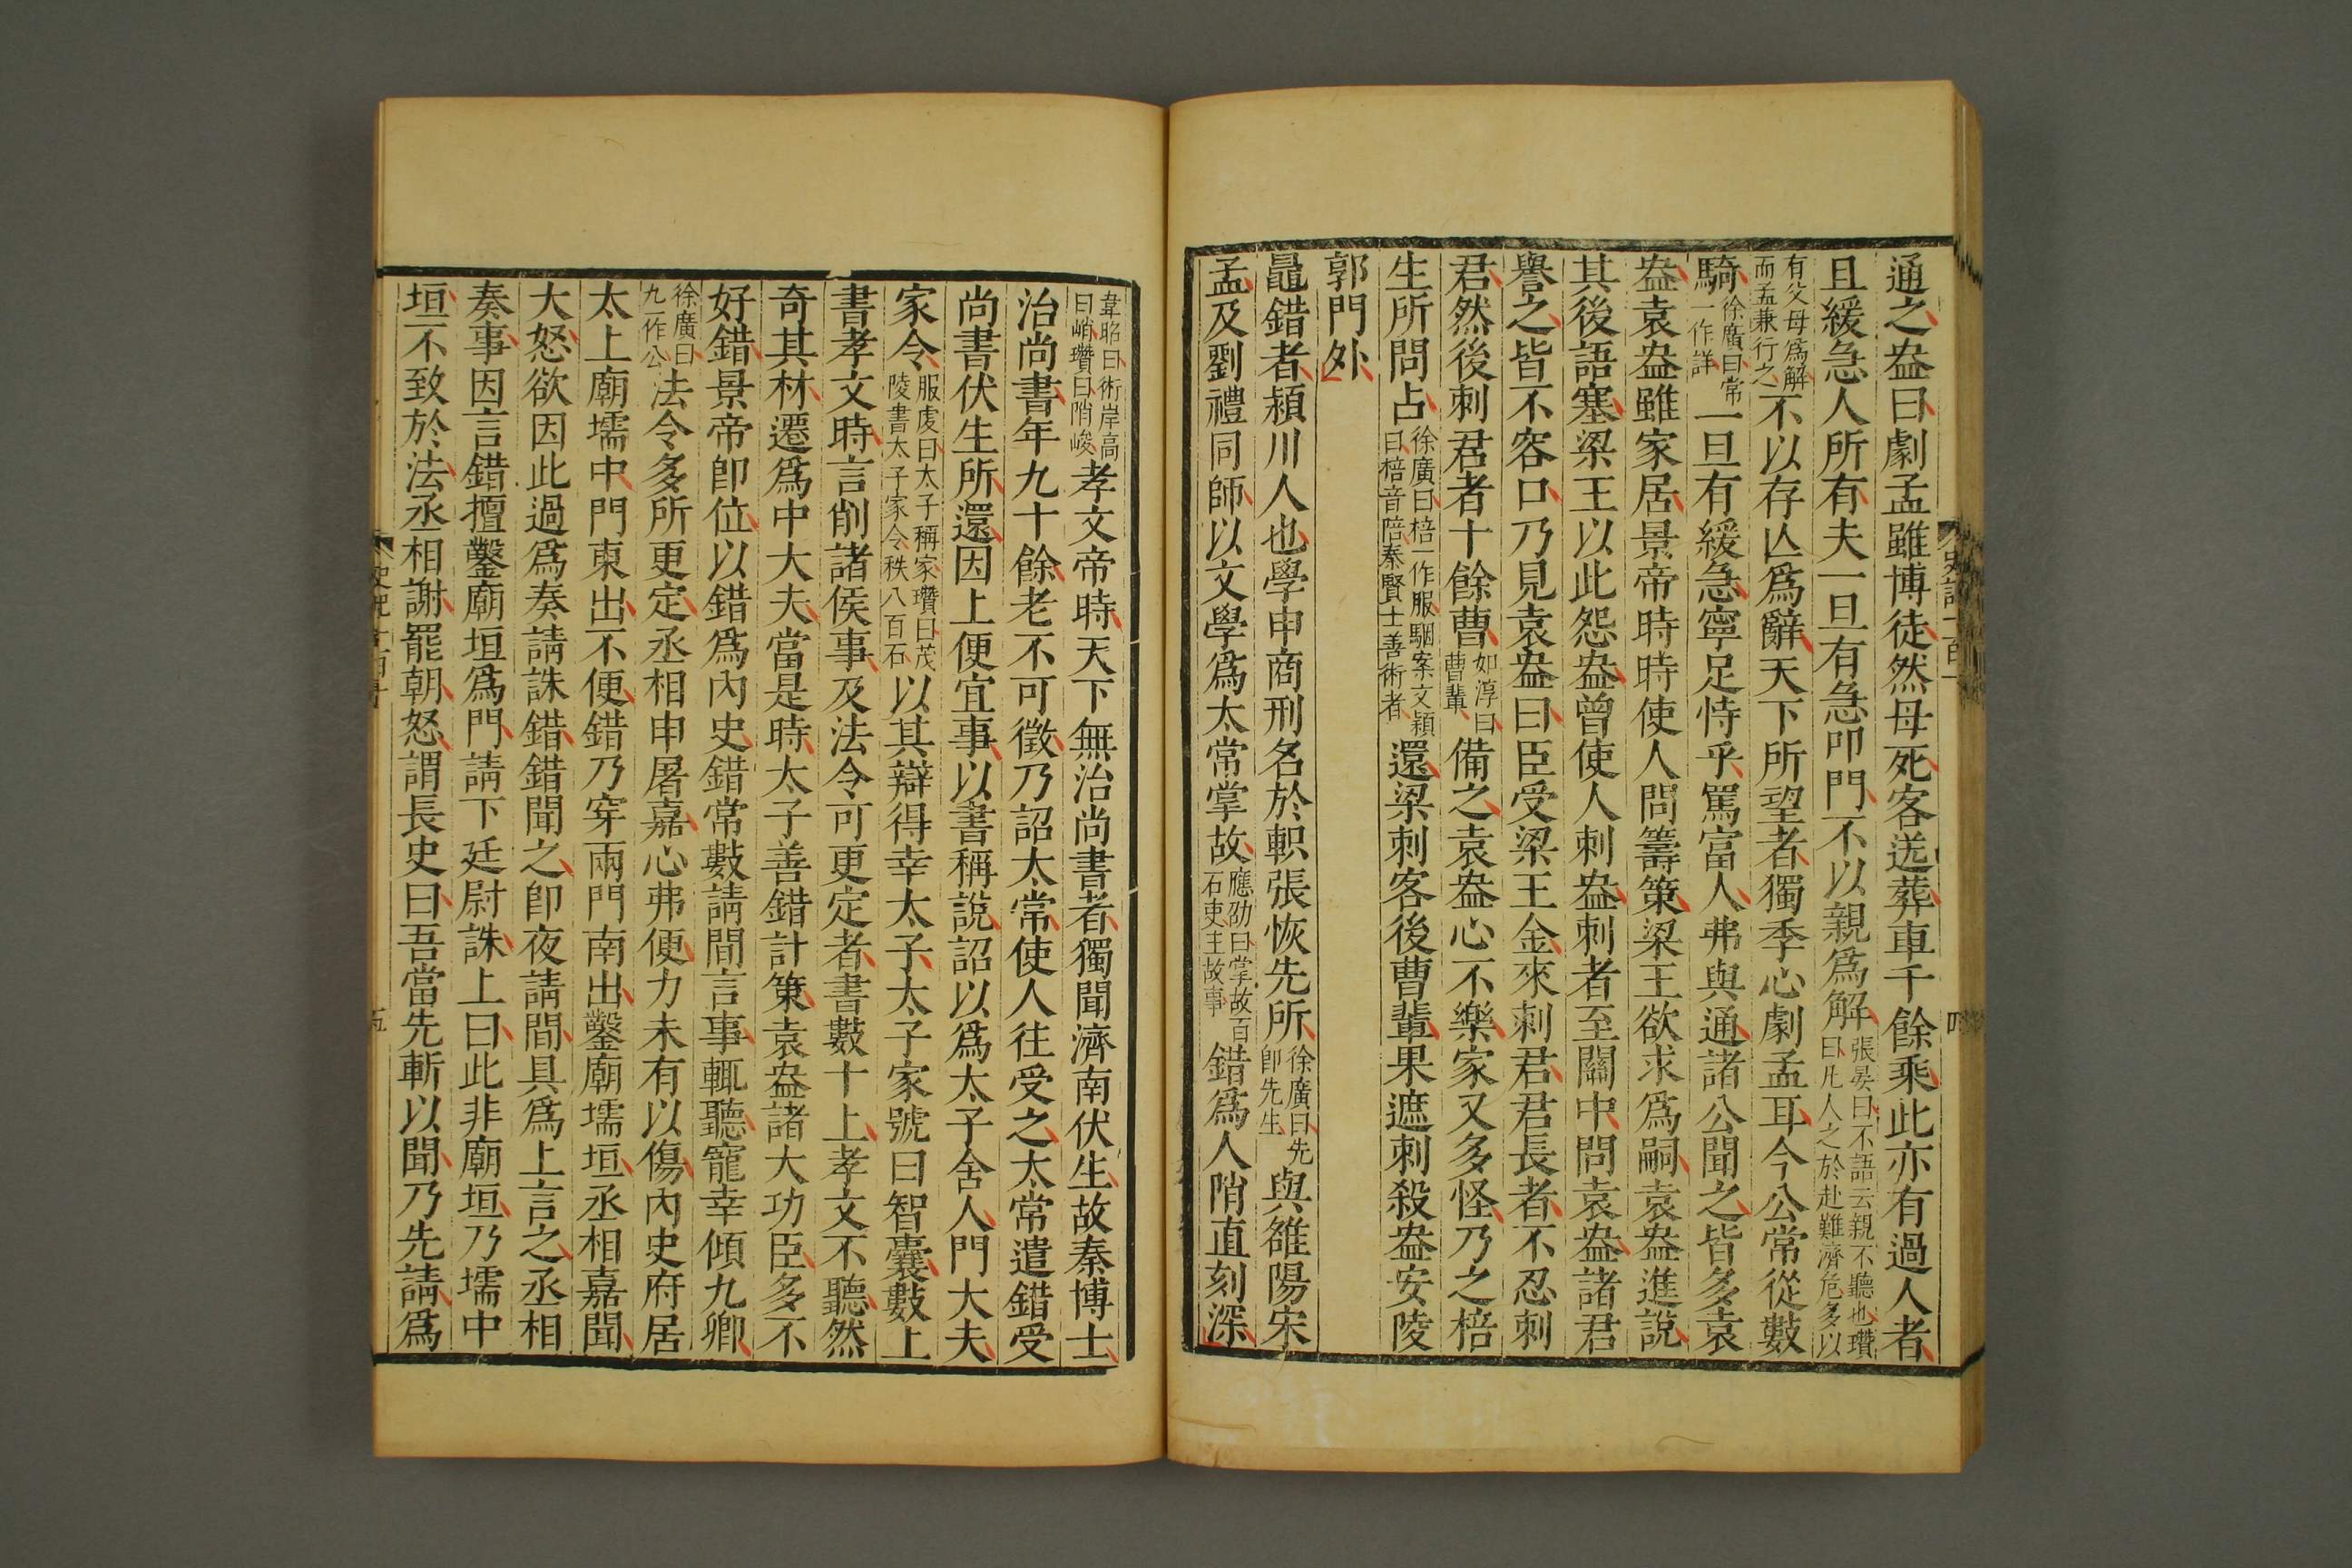 通之盎曰劇孟雖博徒然母死客送葬車千餘乘此亦有過人者
且緩急人所有夫一旦有急叩門不以親爲解張晏曰不語云親不聽也瓚曰凡人之於赴難濟危多以
有父母爲解而孟兼行之不以存亾爲辭天下所望者獨季心劇孟耳今公常從數
騎徐廣曰常一作詳一旦有緩急寧足恃乎罵富人弗與通諸公聞之皆多袁
盎袁盎雖家居景帝時時使人問籌策梁王欲求爲嗣袁盎進說
其後語塞梁王以此怨盎曾使人刺盎刺者至關中問袁盎諸君
譽之皆不容口乃見袁盎曰臣受梁王金來刺君君長者不忍刺
君然後刺君者十餘曹如淳曰曹輩備之袁盎心不樂家又多怪乃之棓
生所問占徐廣曰棓一作服駰案文穎曰棓音陪秦賢士善術者還梁刺客後曹輩果遮刺殺盎安陵
郭門外
鼂錯者潁川人也學申商刑名於軹張恢先所徐廣曰先卽先生與雒陽宋
孟及劉禮同師以文學爲太常掌故應劭曰掌故百石吏主故事錯爲人陗直刻深
韋昭曰術岸高曰峭瓚曰陗峻孝文帝時天下無治尚書者獨聞濟南伏生故秦博士
治尚書年九十餘老不可徵乃詔太常使人往受之太常遣錯受
尚書伏生所還因上便宜事以書稱說詔以爲太子舍人門大夫
家令服虔曰太子稱家瓚曰茂陵書太子家令秩八百石以其辯得幸太子太子家號曰智囊數上
書孝文時言削諸侯事及法令可更定者書數十上孝文不聽然
奇其材遷爲中大夫當是時太子善錯計策袁盎諸大功臣多不
好錯景帝卽位以錯爲內史錯常數請間言事輒聽寵幸傾九卿
徐廣曰九一作公法令多所更定丞相申屠嘉心弗便力未有以傷內史府居
太上廟壖中門東出不便錯乃穿兩門南出鑿廟壖垣丞相嘉聞
大怒欲因此過爲奏請誅錯錯聞之卽夜請間具爲上言之丞相
奏事因言錯擅鑿廟垣爲門請下廷尉誅上曰此非廟垣乃壖中
垣不致於法丞相謝罷朝怒謂長史曰吾當先斬以聞乃先請爲